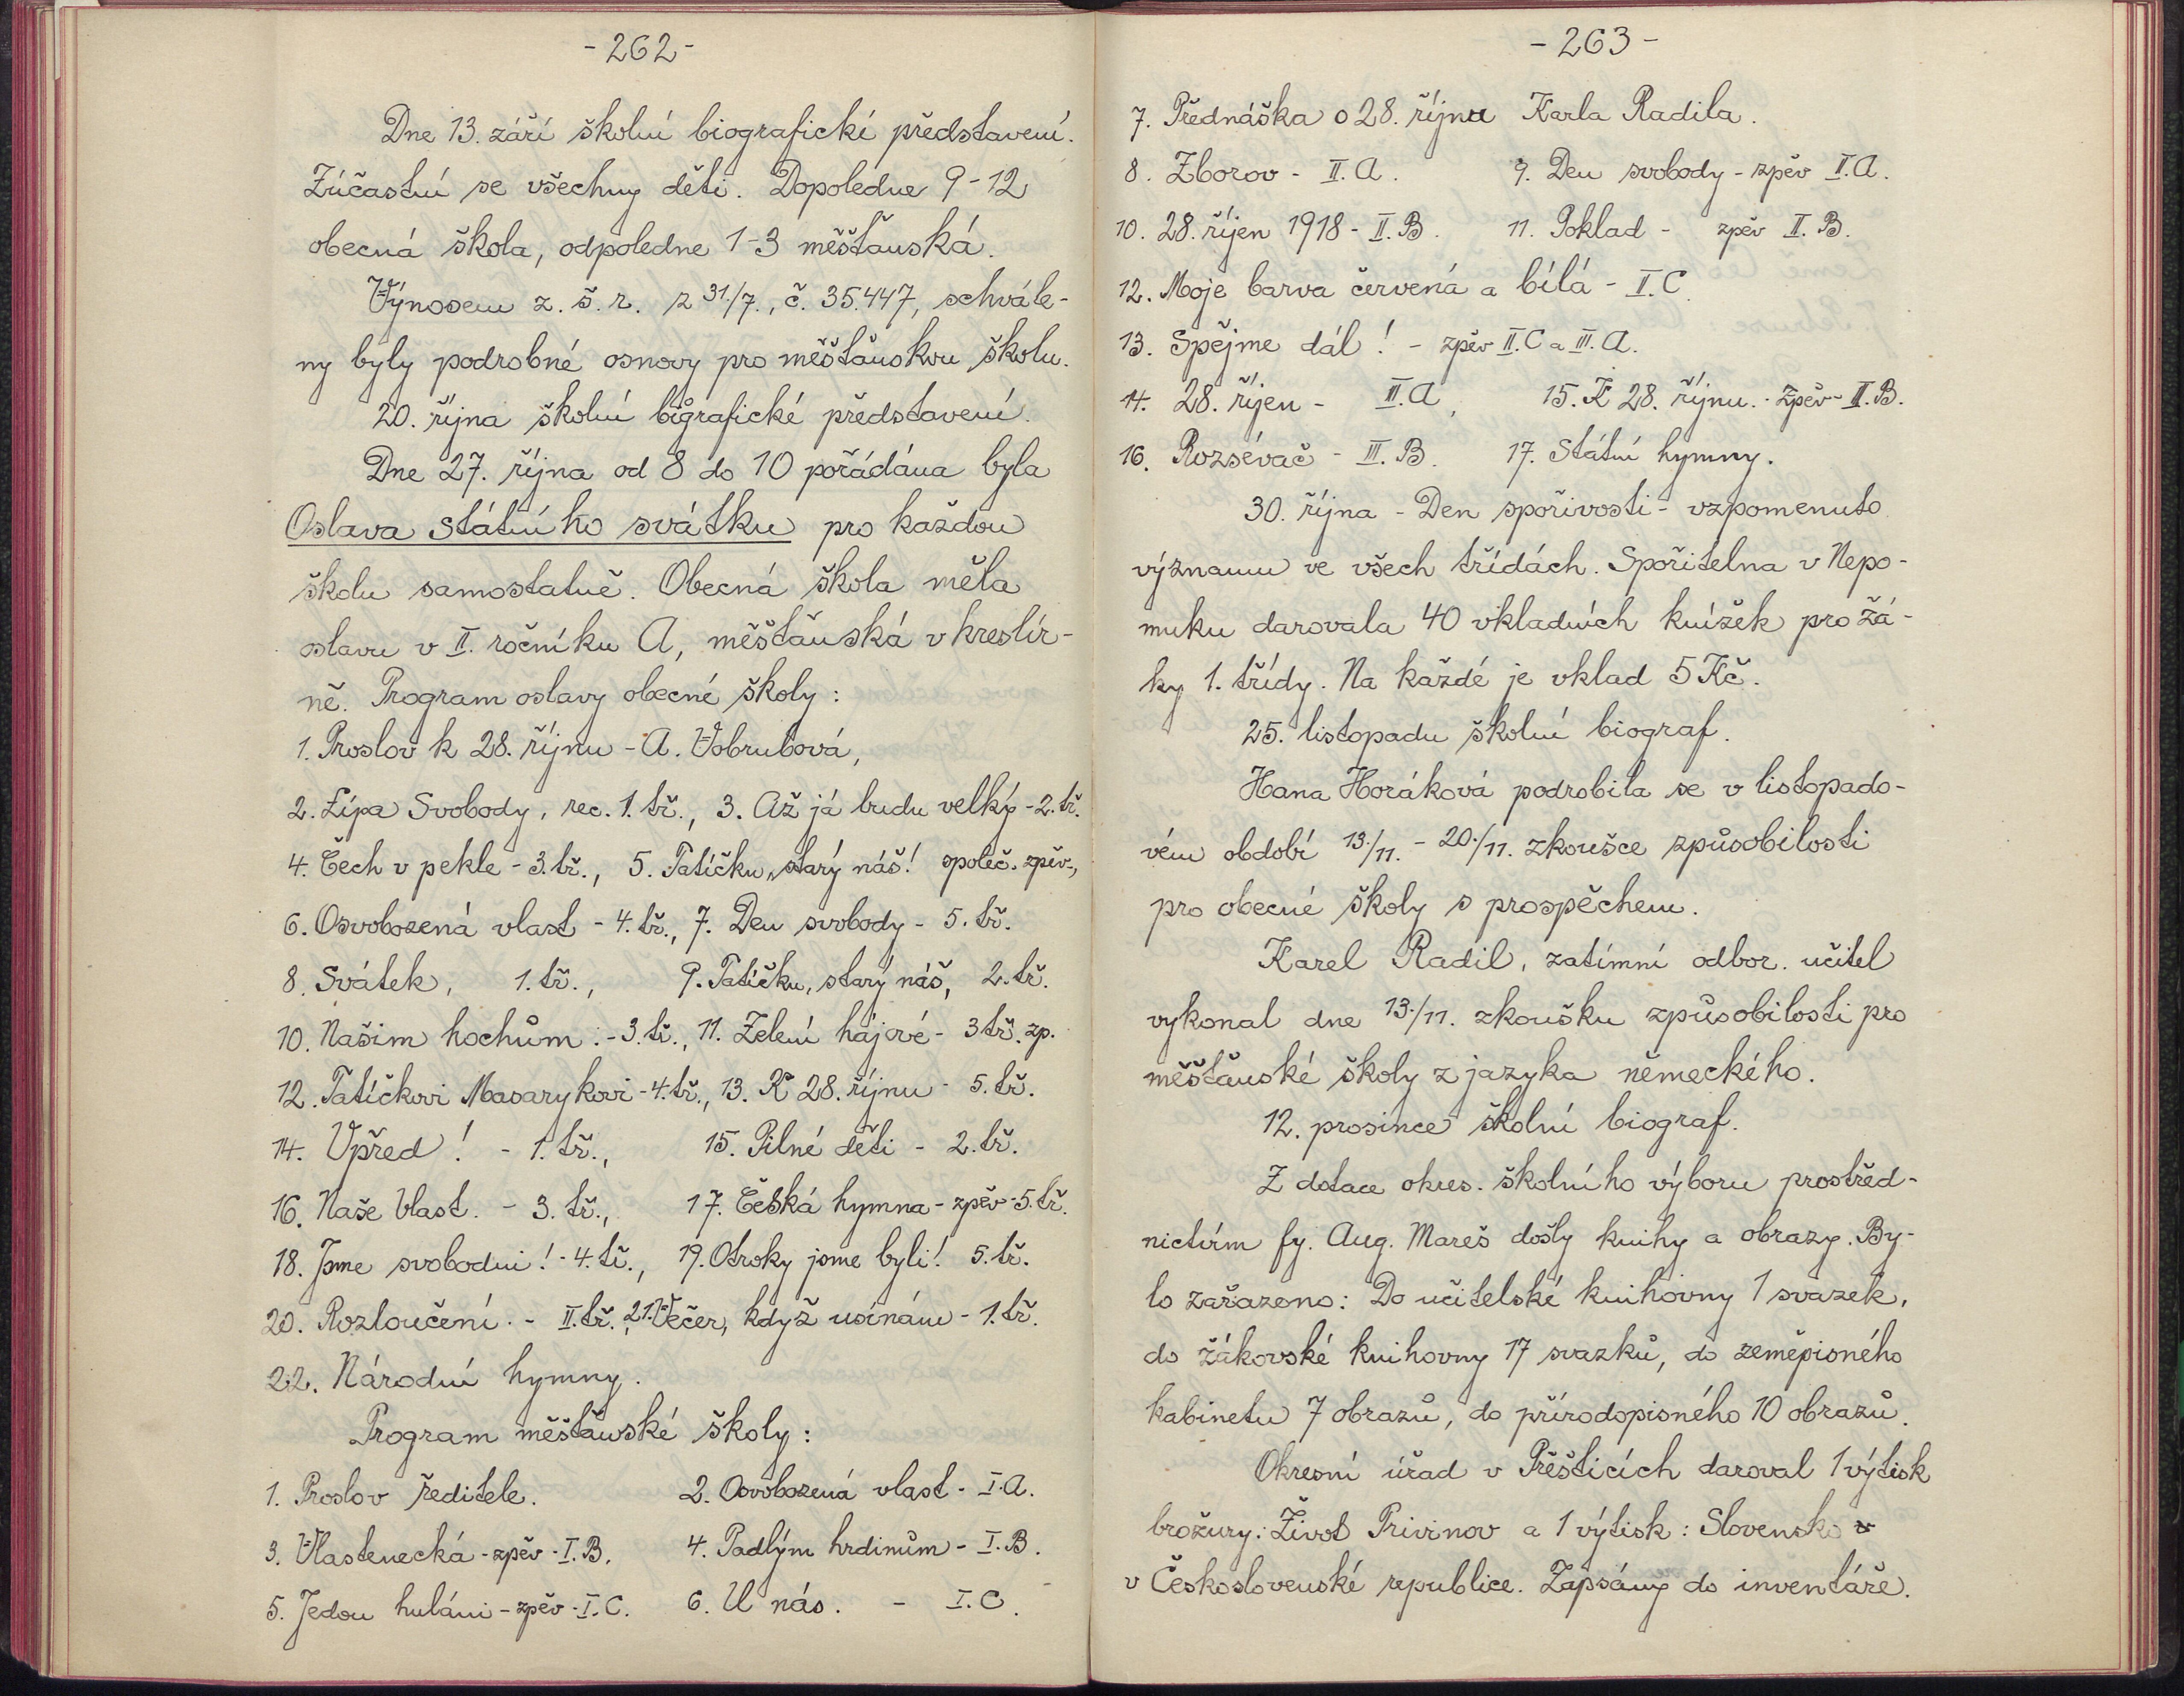 - 262 -
Dne 13. září školní biografické představení.
Zúčastní se všechny děti. Dopoledne 9-12
obecná škola, odpoledne 1-3 měšťanská.
Výnosem z. š. r. z 31./7., č. 35.447, schvále-
ny byly podrobné osnovy pro měšťanskou školu.
20. října školní biografické představení.
Dne 27. října od 8 do 10 pořádána byla
Oslava státního svátku pro každou
školu samostatně. Obecná škola měla
oslavu v II. ročníku A, měšťanská v kreslír-
ně. Program oslavy obecné školy:
1. Proslov k 28. říjnu - A. Vobrubová,
2. Lípa Svobody, rec. 1. tř., 3. Až já budu velký - 2. tř.
4. Čech v pekle - 3. tř., 5. Tatíčku, starý náš! společ. zpěv,
6. Osvobozená vlast - 4. tř., 7. Den svobody - 5. tř.
8. Svátek, 1. tř., 9. Tatíčku, starý náš, 2. tř.
10. Našim hochům: - 3. tř., 11. Zelení hájové - 3 tř. zp.
12. Tatíčkovi Masarykovi - 4. tř., 13. K 28. říjnu - 5. tř.
14. Vpřed! - 1. tř., 15. Pilné děti - 2. tř.
16. Naše Vlast. - 3. tř., 17. Česká hymna - zpěv - 5. tř.
18. Jsme svobodni! - 4. tř., 19. Otroky jsme byli! 5. tř.
20. Rozloučení. - II. tř., 21. Večer, když usínám - 1. tř.
22. Národní hymny.
Program měšťanské školy:
1. Proslov ředitele. 2. Osvobozená vlast - I. A.
3. Vlastenecká - zpěv - I. B. 4. Padlým hrdinům - I. B.
5. Jedou huláni - zpěv - I. C. 6. U nás. - I. C.
- 263 -
7. Přednáška o 28. říjnu Karla Radila.
8. Zborov - II. A. 9. Den svobody - zpěv II. A.
10. 28. říjen 1918 - II. B. 11. Poklad - zpěv II. B.
12. Moje barva červená a bílá - II. C.
13. Spějme dál! - zpěv II. C a III. A.
14. 28. říjen - III. A, 15. K 28. říjnu. - zpěv - III. B.
16. Rozsévač - III. B. 17. Státní hymny.
30. října - Den spořivosti - vzpomenuto
významu ve všech třídách. Spořitelna v Nepo-
muku darovala 40 vkladních knížek pro žá-
ky 1. třídy. Na každé je vklad 5 Kč.
25. listopadu školní biograf.
Hana Horáková podrobila se v listopado-
vém období 13./11. - 20./11. zkoušce způsobilosti
pro obecné školy s prospěchem.
Karel Radil, zatímní odbor. učitel
vykonal dne 13./11. zkoušku způsobilosti pro
měšťanské školy z jazyka německého.
12. prosince školní biograf.
Z dotace okres. školního výboru prostřed-
nictvím fy. Aug. Mareš došly knihy a obrazy. By-
lo zařazeno: Do učitelské knihovny 1 svazek,
do žákovské knihovny 17 svazků, do zeměpisného
kabinetu 7 obrazů, do přírodopisného 10 obrazů.
Okresní úřad v Přešticích daroval 1 výtisk
brožury: Život Privinov a 1 výtisk: Slovensko v
v Československé republice. Zapsány do inventáře.